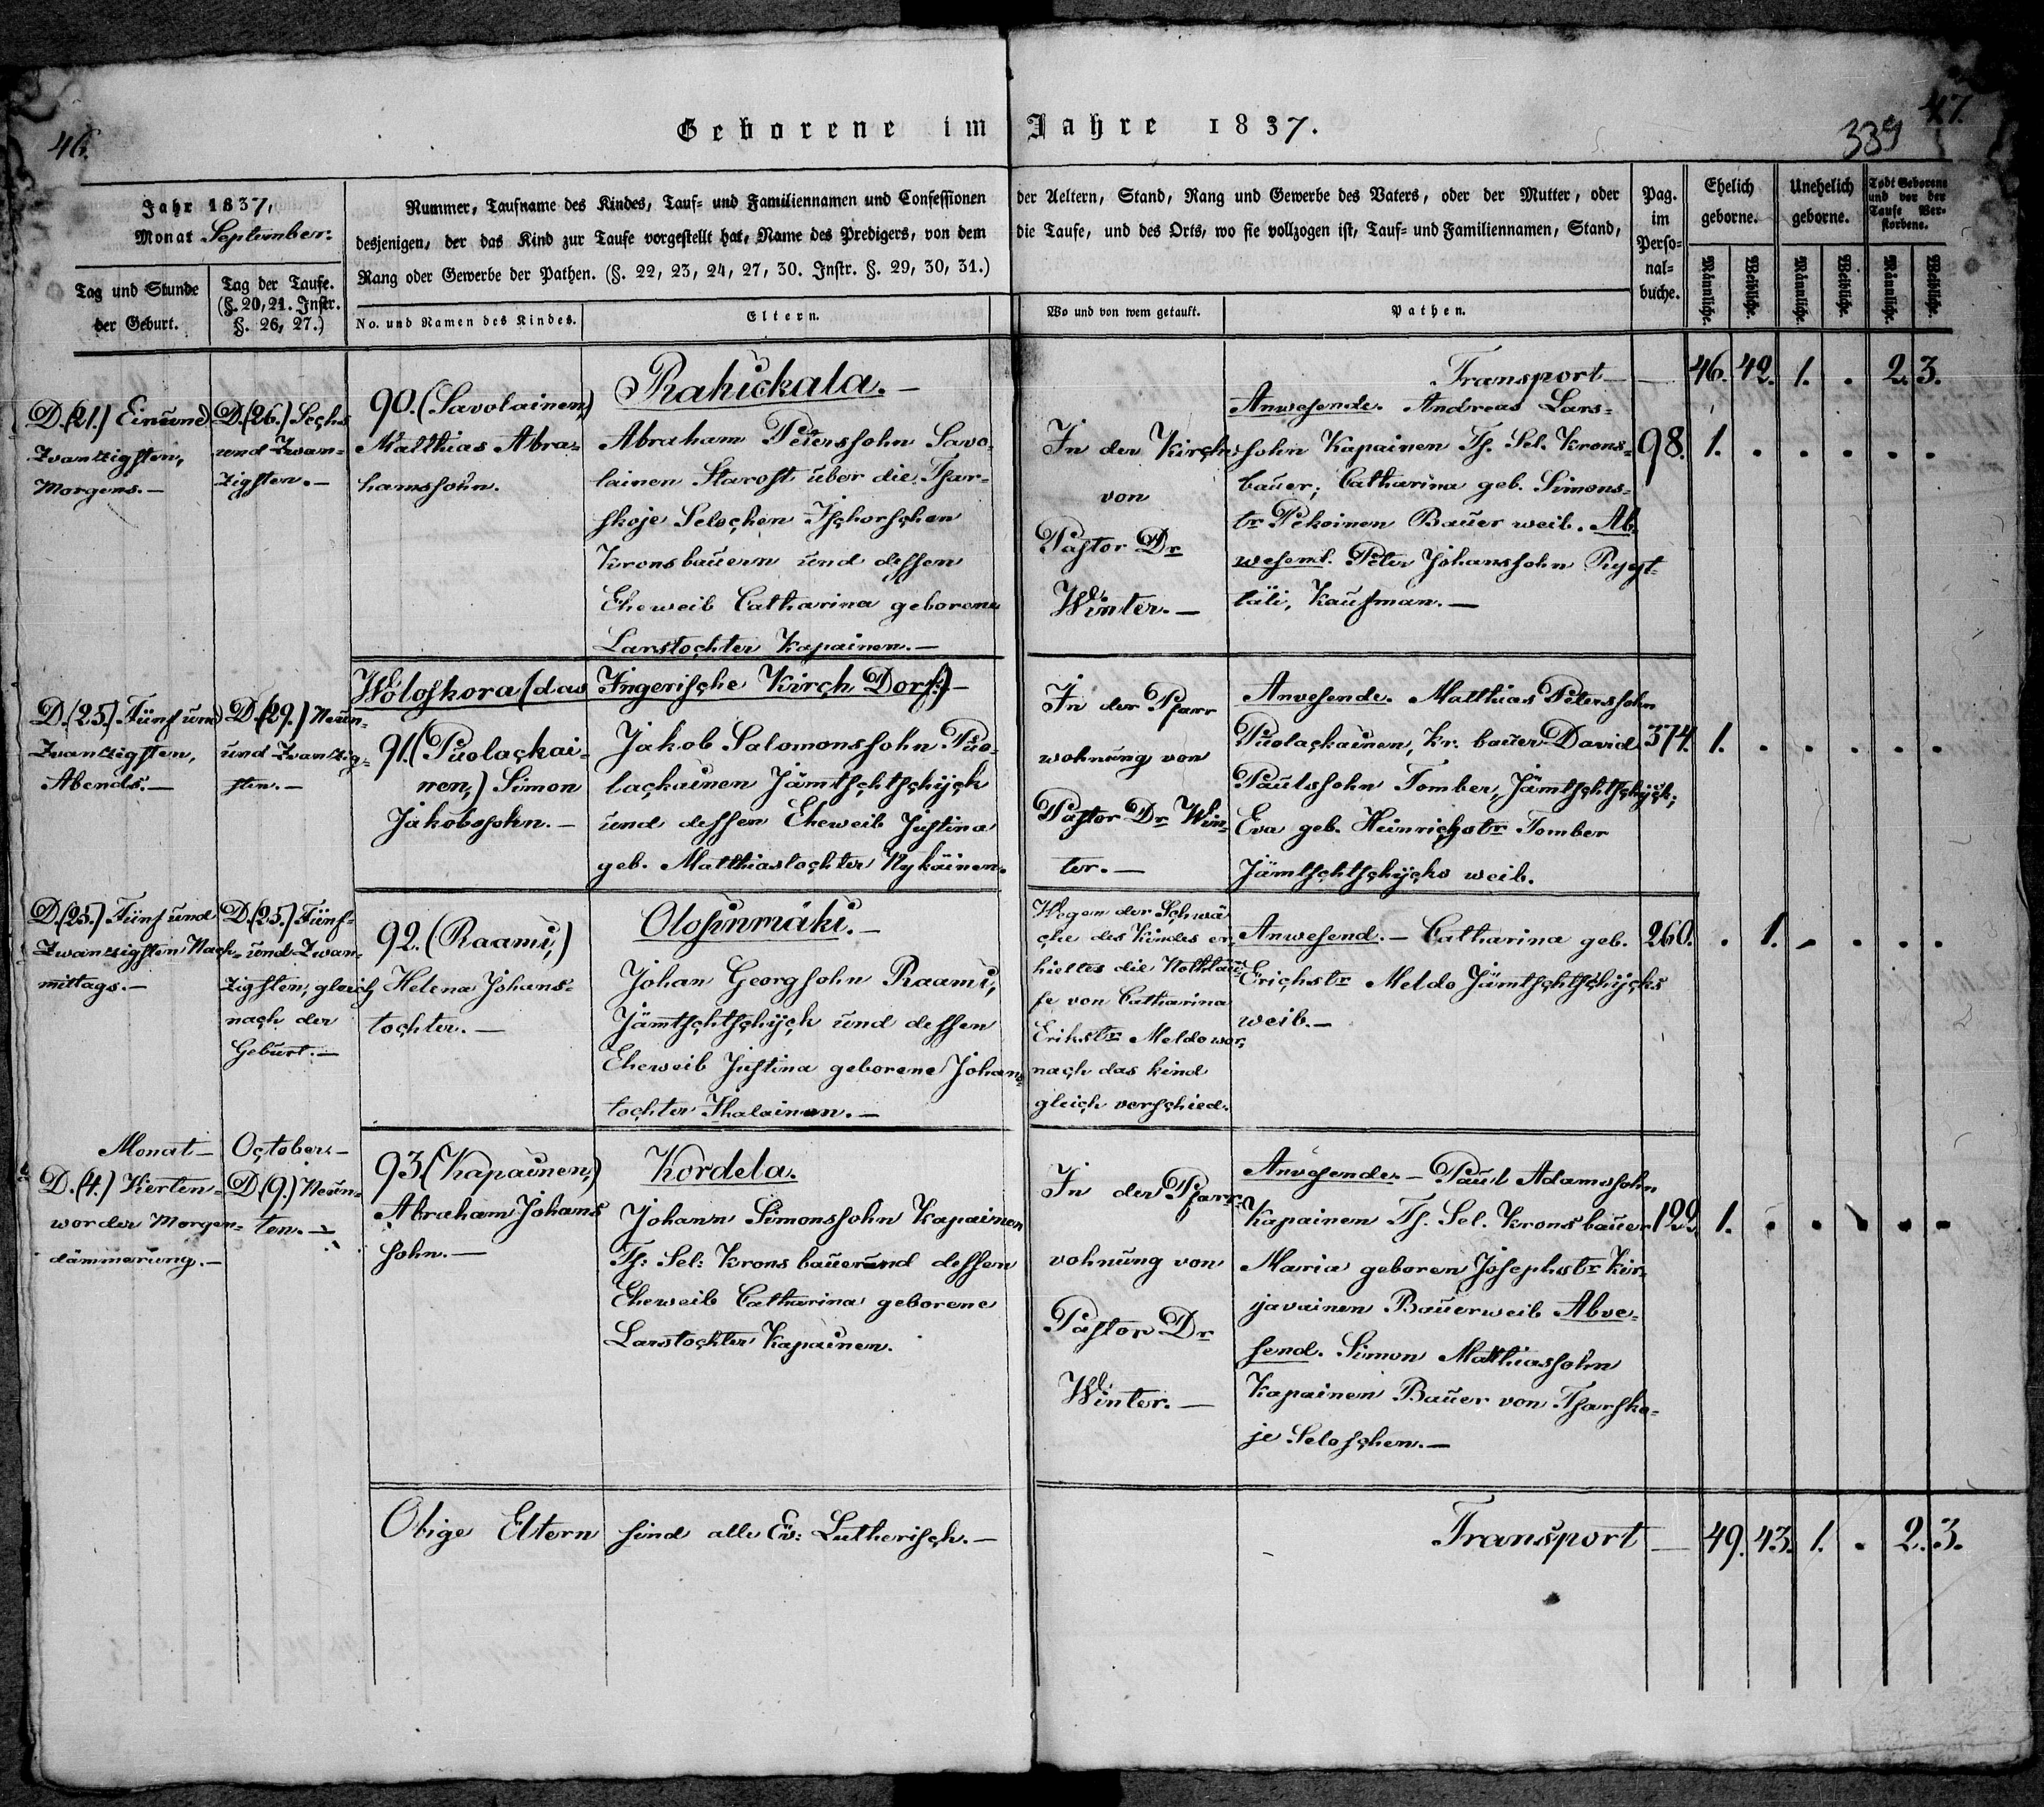 46.
Geborene im Jahre 1837.
339
47.
Jahr 1837,
Monat September.
Tag und Stunde
der Geburt.
Tag der Taufe.
(§. 20, 21. Instr.
§. 26, 27.)
Nummer, Taufname des Kindes, Tauf- und Familiennamen und Confessionen
desjenigen, der das Kind zur Taufe vorgestellt hat, Name des Predigers, von dem
Rang oder Gewerbe der Pathen. (§. 22, 23, 24, 27, 30. Instr. §. 29, 30, 31.)
No. und Namen des Kindes.
Eltern.
der Aeltern, Stand, Rang und Gewerbe des Vaters, oder der Mutter, oder
die Taufe, und des Orts, wo sie vollzogen ist, Tauf- und Familiennamen, Stand,
Wo und von wem getauft.
Pathen.
Pag.
im
Perso-
nal-
buche.
Ehelich
geborne.
Unehelich
geborne.
Todt Geborene
und vor der
Taufe Ver-
storbene.
Männliche.
Weibliche.
Männliche.
Weibliche.
Männliche.
Weibliche.
Transport — 46. 42. 1. . 2. 3.
D. (21.) Einund
Zwanzigsten,
Morgens. —
D. (26.) Sechs
und Zwan-
zigsten. —
90. (Savolainen,)
Matthias Abra-
hamssohn.
Rahickala. —
Abraham Peterssohn Savo-
lainen Starost über die Tsar-
skoje Seloschen Ischorschen
Kronsbauern und dessen
Eheweib Catharina geborene
Larstochter Kapainen. —
In der Kirche
von
Pastor Dr
Winter. —
Anwesende. Andreas Lars-
sohn Kapainen Ts. Sel. Krons-
bauer; Catharina geb. Simons-
tr Pekoinen Bauer weib. Ab-
wesent. Peter Johanssohn
Kaufman. —
98. 1. . . . . .
Woloskora (das Ingerische Kirch Dorf.) —
D. (25.) Fünf und
Zwanzigsten,
Abends. —
D. (29.) Neun-
und Zwanzig-
sten. —
91. (Puolackai-
nen,) Simon
Jakobssohn. —
Jakob Salomonssohn Puo-
lackainen Jämtschtschijck
und dessen Eheweib Justina
geb. Matthiastochter Nykäinen.
In der Pfarr
wohnung von
Pastor Dr Win-
ter. —
Anvesende. Matthias Peterssohn
Puolackainen, Kr. bauer David
Paulssohn Tomber, Jämtschtschijck;
Eva geb. Heinrichstr Tomber
Jämtschtschijcks weib.
374. 1. . . . . .
D. (25.) Fünf und
Zwanzigsten Nach-
mittags. —
D. (25.) Fünf-
und Zwan-
zigsten, gleich
nach der
Geburt. —
92. (Raami,)
Helena Johans-
tochter. —
Olosinmäki. —
Johan Georgsohn Raami,
Jämtschtschijck und dessen
Eheweib Justina geborene Johans-
tochter Ihalainen. —
Wegen der Schwä
che des Kindes er-
hieltes die Nothtau-
fe von Catharina
Erikstr Meldo wor-
nach das kind
gleich verschied.
Anwesend. — Catharina geb.
Erichstr Meldo Jämtschtschijcks
weib. —
260. . 1. . . . .
Monat — October. —
D. (4.) Vierten
vor der Morgen-
dämmerung. —
D. (9.) Neun-
ten. —
93 (Kapainen,)
Abraham Johans
sohn. —
Kordela.
Johann Simonssohn Kapainen
Ts: Sel: Krons bauer und dessen
Eheweib Catharina geborene
Larstochter Kapainen.
In der Pfarr-
vohnung von
Pastor Dr
Winter. —
Anvesende. — Paul Adamssohn
Kapainen Ts. Sel. Krons bauer
Maria geboren Josephstr Kir-
javainen Bauerweib Abve-
send. Simon Matthiassohn
Kapainen Bauer von Tsarsko-
je Seloschen. —
199. 1. . . . . .
Obige Eltern sind alle Ev: Lutherisch. —
Transport — 49. 43. 1. . 2. 3.